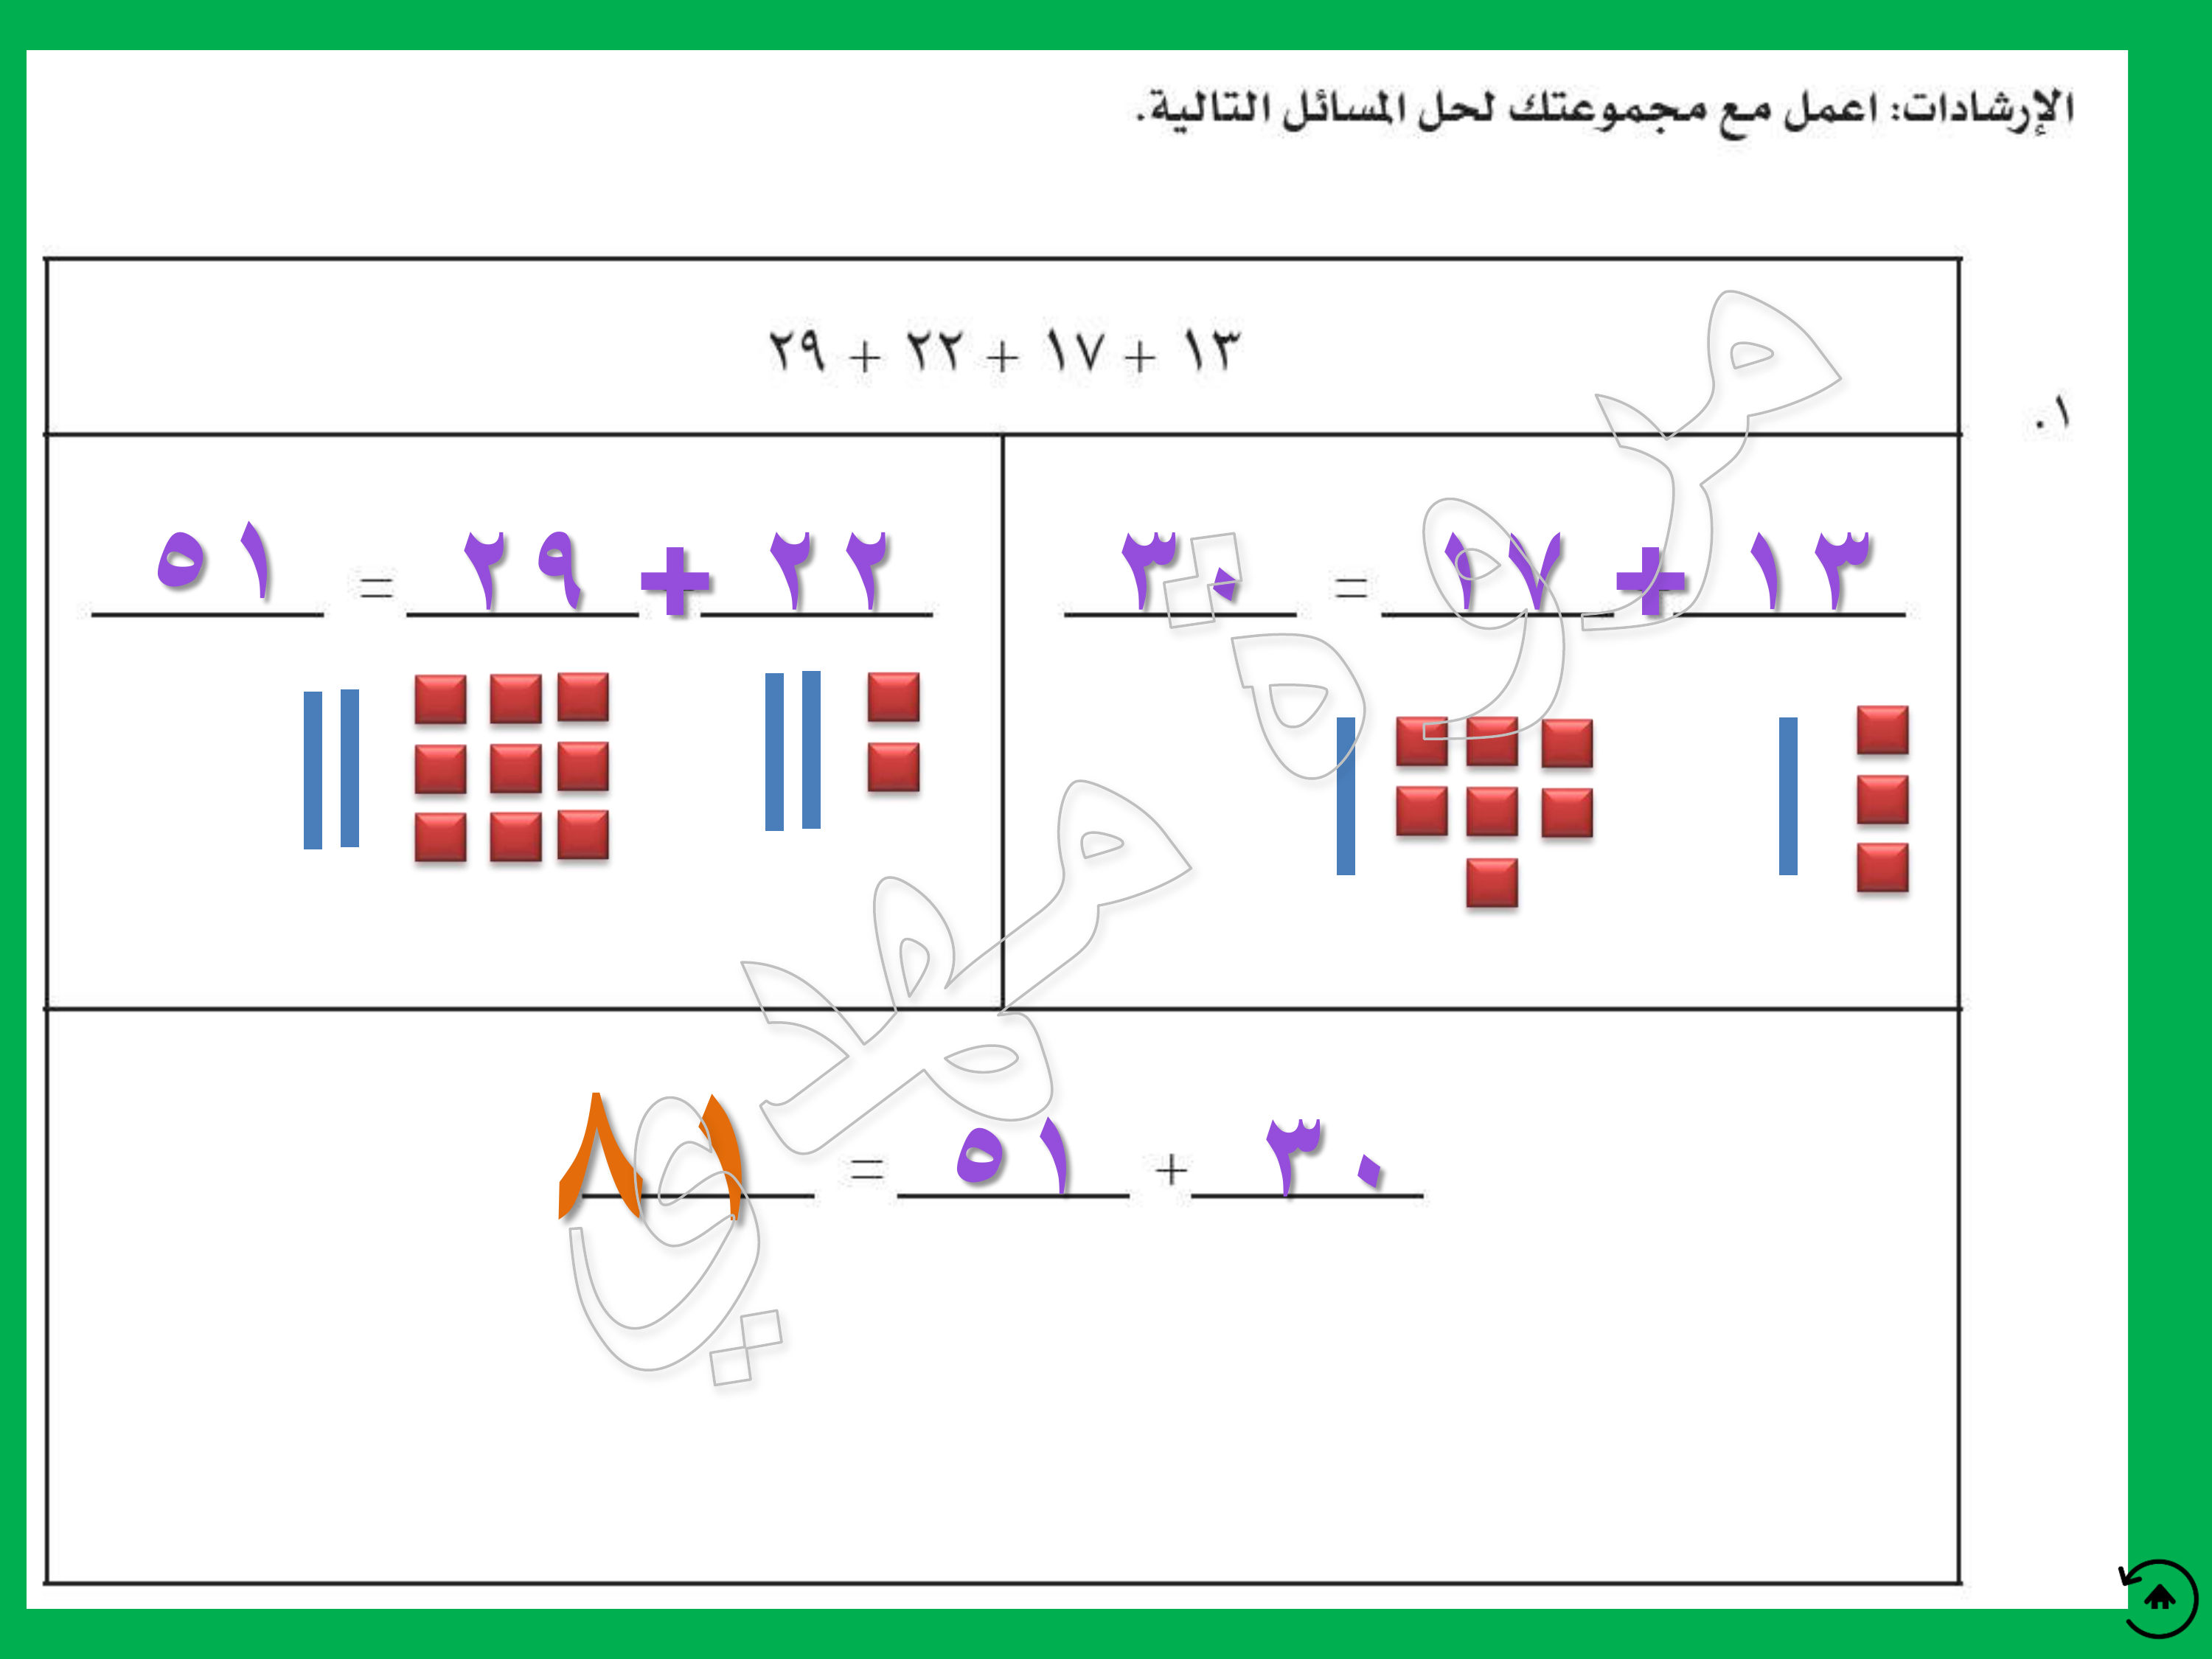 الإرشادات: اعمل مع مجموعتك لحل المسائل التالية.
١٣ + ١٧ + ٢٢ + ٢٩
١.
١٣ + ١٧ = ٣٠
٢٢ + ٢٩ = ٥١
٣٠ + ٥١ = ٨١